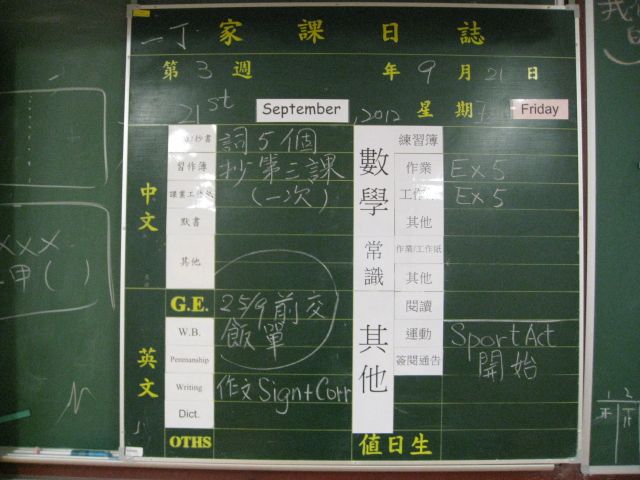 一丁 家課日誌
第 3 週 年 9 月 21 日
21st September , 2012 星期 Friday
中文
抄書 詞5個
習作簿 抄第三課
課業工作紙 (一次)
默書
其他
英文
G.E. 25/9前交
W.B. 飯單
Penmanship
Writing 作文 Sign + Corr
Dict.
OTHS
數學
練習簿
作業 Ex 5
工作 Ex 5
其他
常識
作業/工作紙
其他
其他
閱讀
運動 Sport Act
簽閱通告 開始
值日生
XXX
甲 ( )
我
1 2